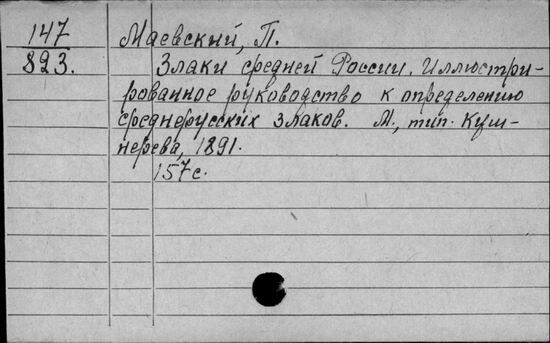 147
823.
Маевский, П.
Злаки средней России. Иллюстри-
рованное руководство к определению
среднерусских злаков. М., тип. Куш-
нерева, 1891.
157 с.